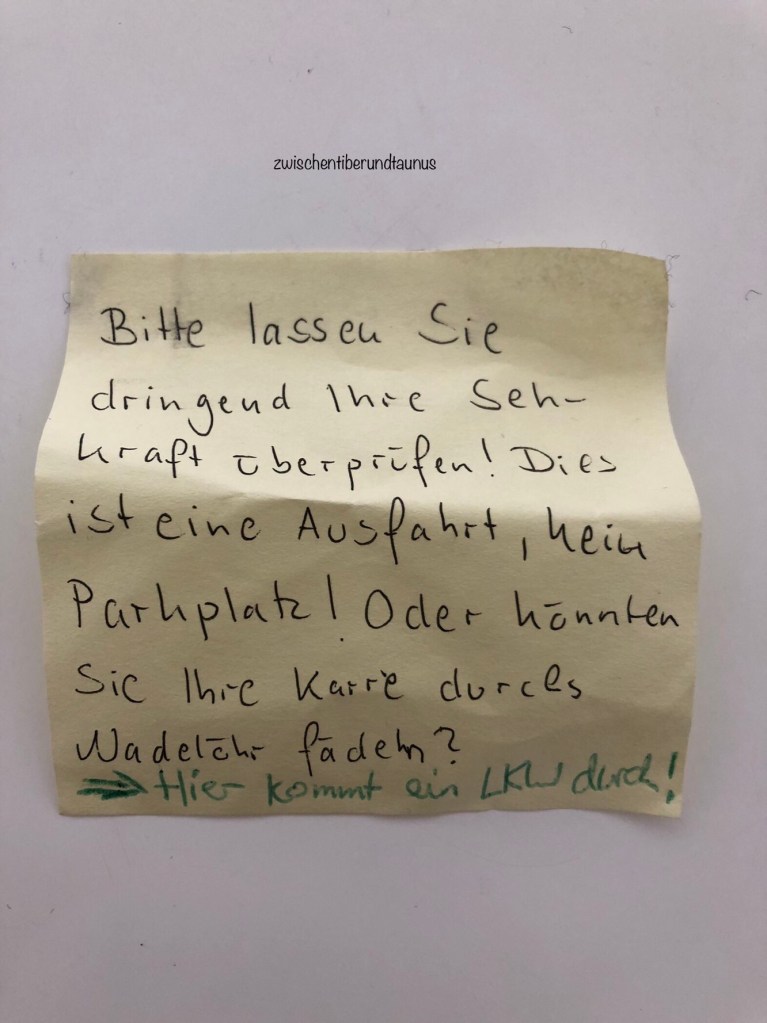 zwischentiberundtaunus
Bitte lassen Sie
dringend Ihre Seh-
kraft überprüfen! Dies
ist eine Ausfahrt, kein
Parkplatz! Oder könnten
Sie Ihre Karre durchs
Nadelöhr fädeln?
⇒ Hier kommt ein LKW durch!